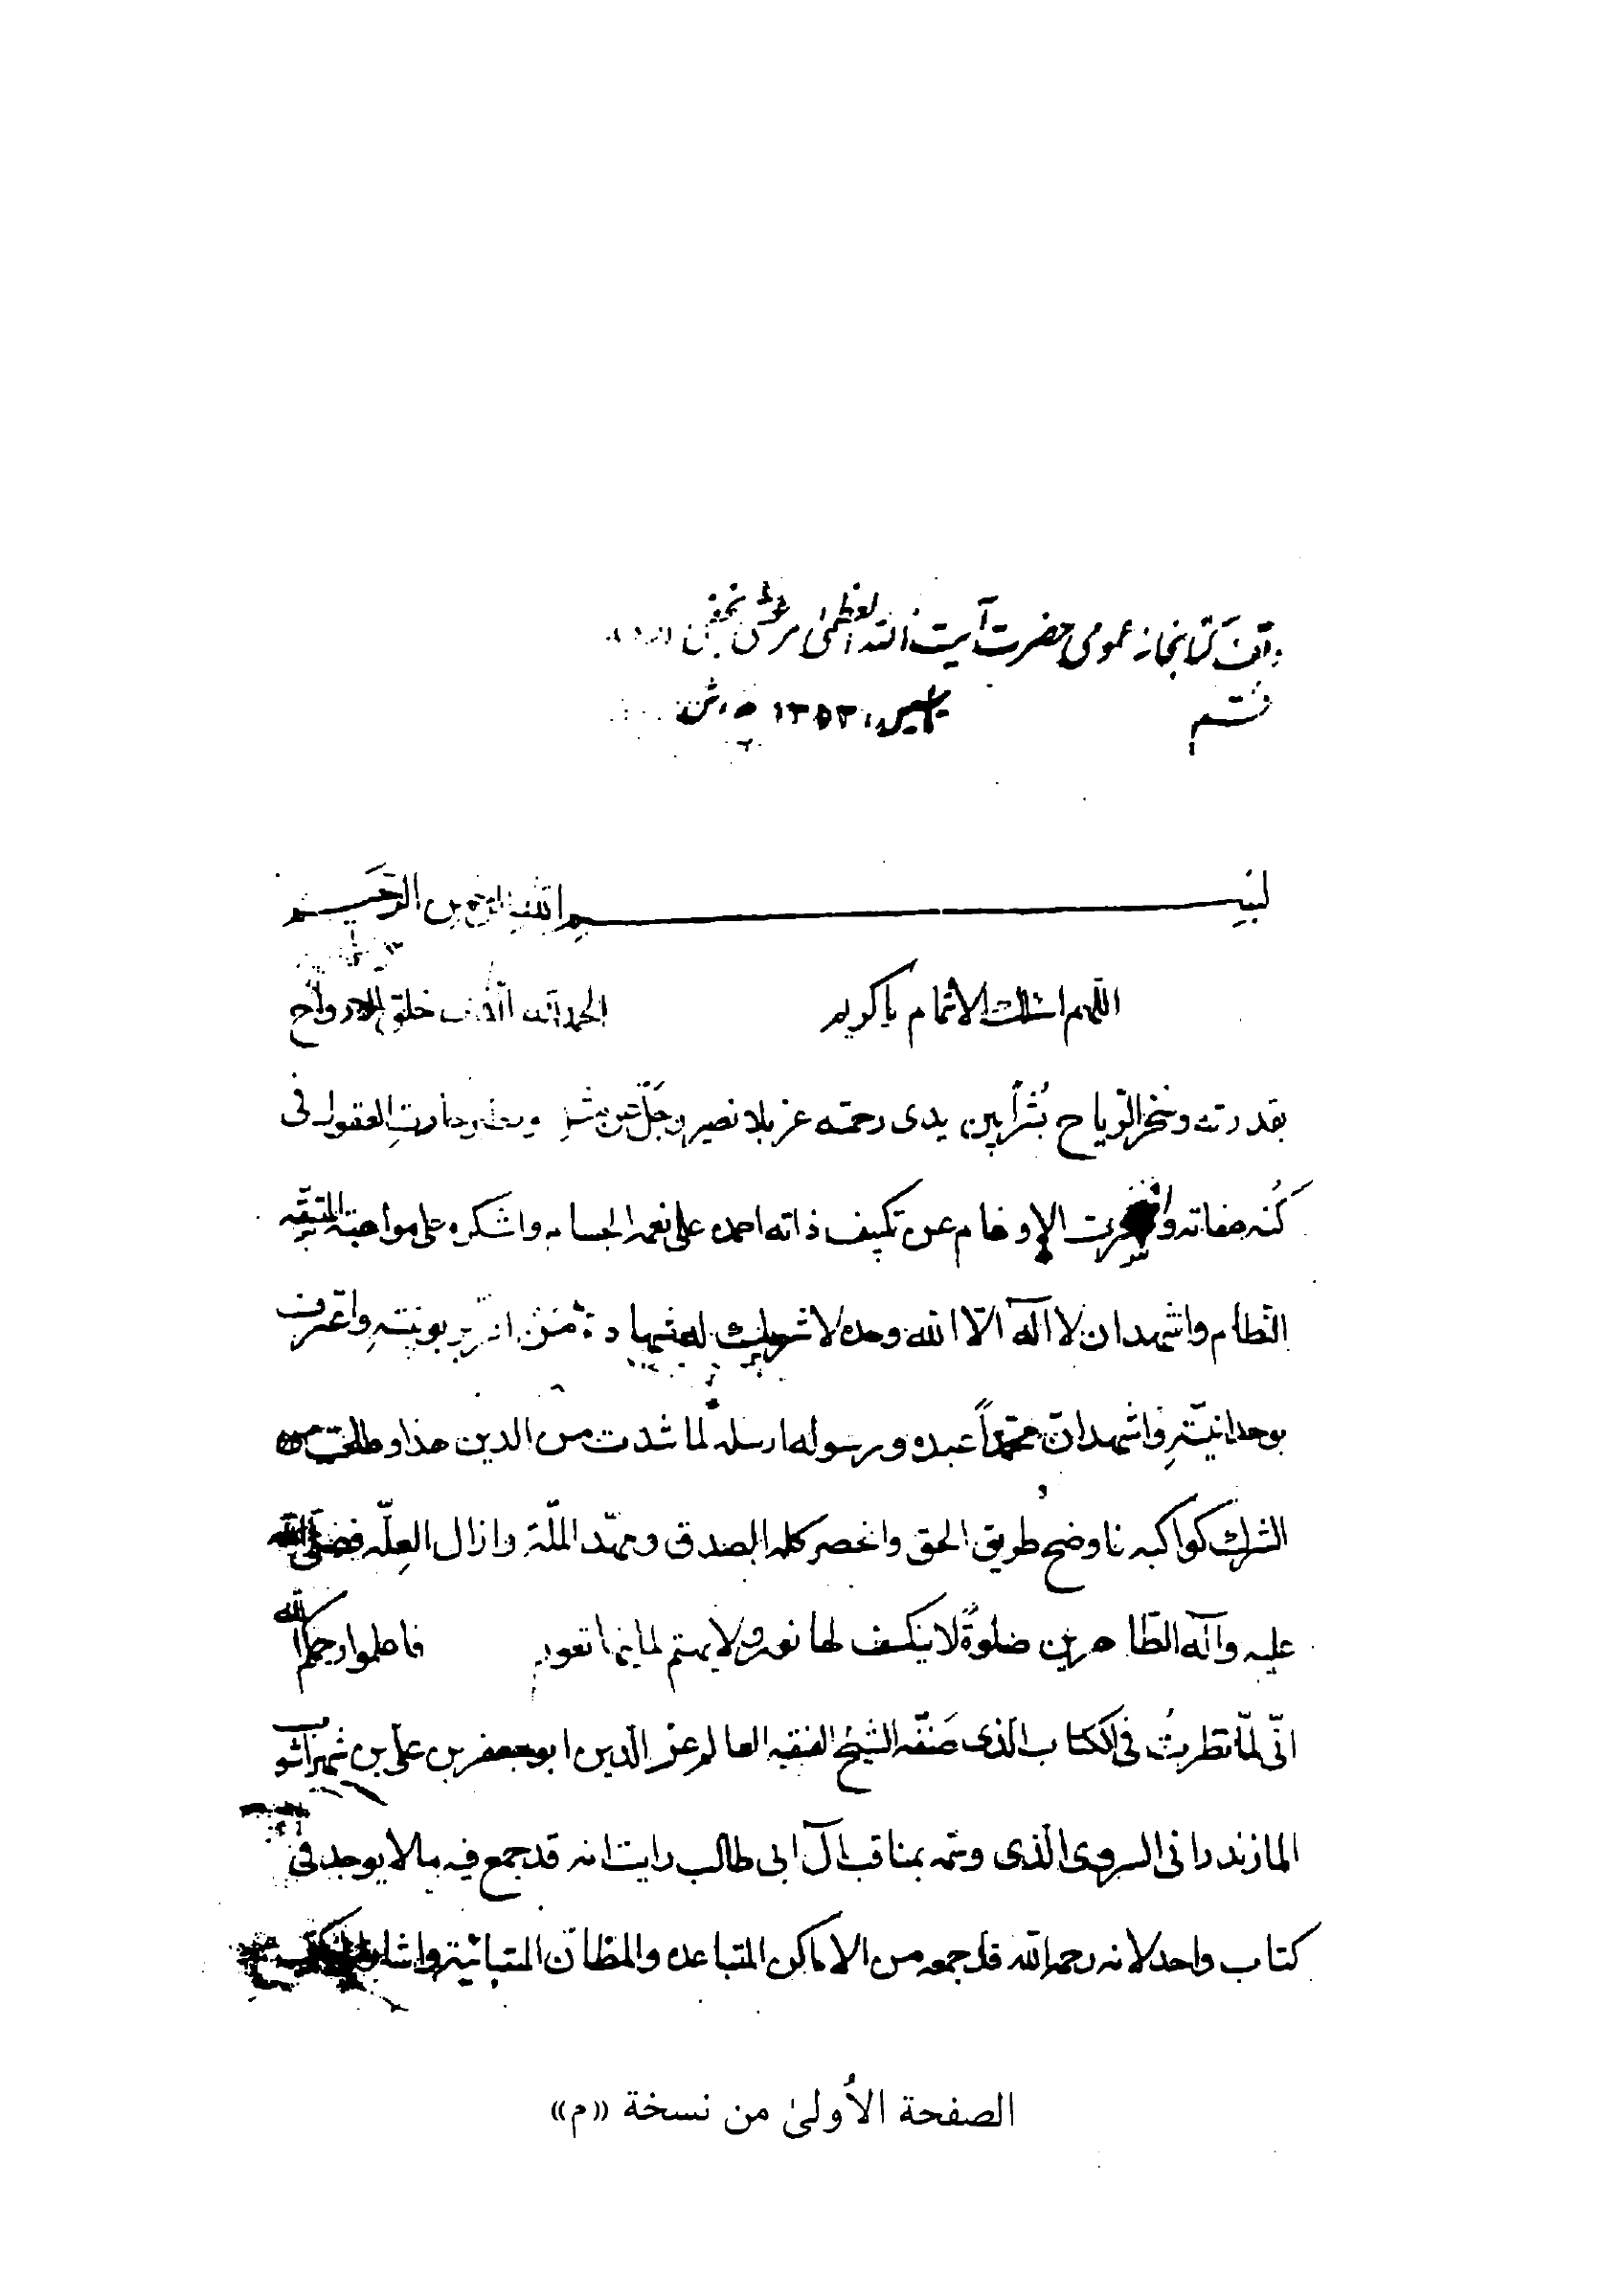 وقف كتابخانه عمومی حضرت آیت الله العظمی مرعشی نجفی
قم ١٣٥٣ ه.ش
بسم الله الرحمن الرحيم
اللهم اسئلك الاتمام ياكريم الحمد لله الذى خلق الارواح
بقدرته وسخر الرياح بُشراً بين يدى رحمته عز بلا نصير وجلّ عن وحارت العقول فى
كُنه صفاته الاوهام عن تكييف ذاته احمده على نعمه الجسام واشكره على مواهبه
العظام واشهد ان لا اله الّا الله وحده لا شريك له شهادة مَن بربوبيته واعترف
بوحدانيّته واشهد انّ محمّداً عبده ورسوله ارسله لما شدت من الدين هذا وطلعت من
الشرك كواكبه فاوضح طريق الحق وانحصر كلمه الصدق ومهّد الملّة وازال العِلّه فصلى الله
عليه وآله الطّاهرين صلوةً لا ينكسف لها نور ولا يهتم لما
فاعلموا رحمكم الله
انّى لمّا نظرتُ فى الكتاب الّذى صَنفّه الشيخ الفقيه العالم عزّ الدين ابو جعفر بن على بن شهراشو
المازندرانى السروى الّذى وسمه بمناقب آل ابى طالب رايت انه قد جمع فيه مالا يوجد فى
كتاب واحد لانه رحمه الله قد جمعه من الاماكن المتباعده والمظانّ المتباينة
الصفحة الأولىٰ من نسخة «م»